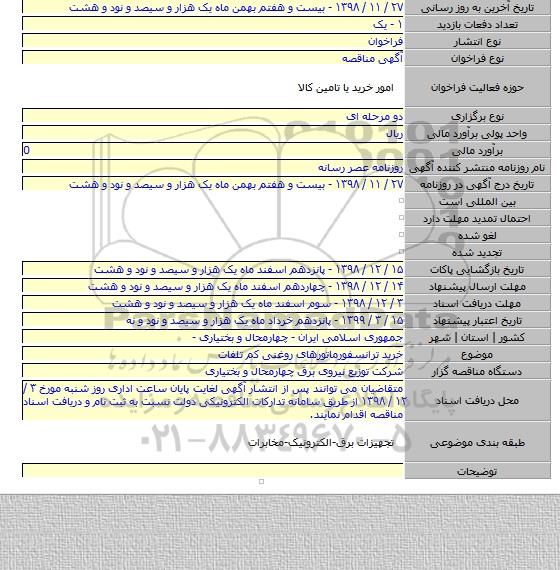 تاریخ آخرین به روز رسانی ۲۷ / ۱۱ / ۱۳۹۸ - بیست و هفتم بهمن ماه یک هزار و سیصد و نود و هشت
تعداد دفعات بازدید ۱ - یک
نوع انتشار فراخوان
نوع فراخوان آگهی مناقصه
حوزه فعالیت فراخوان امور خرید یا تامین کالا
نوع برگزاری دو مرحله ای
واحد پولی برآورد مالی ریال
برآورد مالی 0
نام روزنامه منتشر کننده آگهی روزنامه عصر رسانه
تاریخ درج آگهی در روزنامه ۲۷ / ۱۱ / ۱۳۹۸ - بیست و هفتم بهمن ماه یک هزار و سیصد و نود و هشت
بین المللی است
احتمال تمدید مهلت دارد
لغو شده
تجدید شده
تاریخ بازگشایی پاکات ۱۵ / ۱۲ / ۱۳۹۸ - پانزدهم اسفند ماه یک هزار و سیصد و نود و هشت
مهلت ارسال پیشنهاد ۱۴ / ۱۲ / ۱۳۹۸ - چهاردهم اسفند ماه یک هزار و سیصد و نود و هشت
مهلت دریافت اسناد ۳ / ۱۲ / ۱۳۹۸ - سوم اسفند ماه یک هزار و سیصد و نود و هشت
تاریخ اعتبار پیشنهاد ۱۵ / ۳ / ۱۳۹۹ - پانزدهم خرداد ماه یک هزار و سیصد و نود و نه
کشور | استان | شهر جمهوری اسلامی ایران - چهارمحال و بختیاری -
موضوع خرید ترانسفورماتورهای روغنی کم تلفات
دستگاه مناقصه گزار شرکت توزیع نیروی برق چهارمحال و بختیاری
محل دریافت اسناد متقاضیان می توانند پس از انتشار آگهی لغایت پایان ساعت اداری روز شنبه مورخ ۳ /
۱۲ / ۱۳۹۸ از طریق سامانه تدارکات الکترونیکی دولت نسبت به ثبت نام و دریافت اسناد
مناقصه اقدام نمایند.
طبقه بندی موضوعی تجهیزات برق-الکترونیک-مخابرات
توضیحات
۰۲۱-۸۸۳۴۹۶۷۰-۵